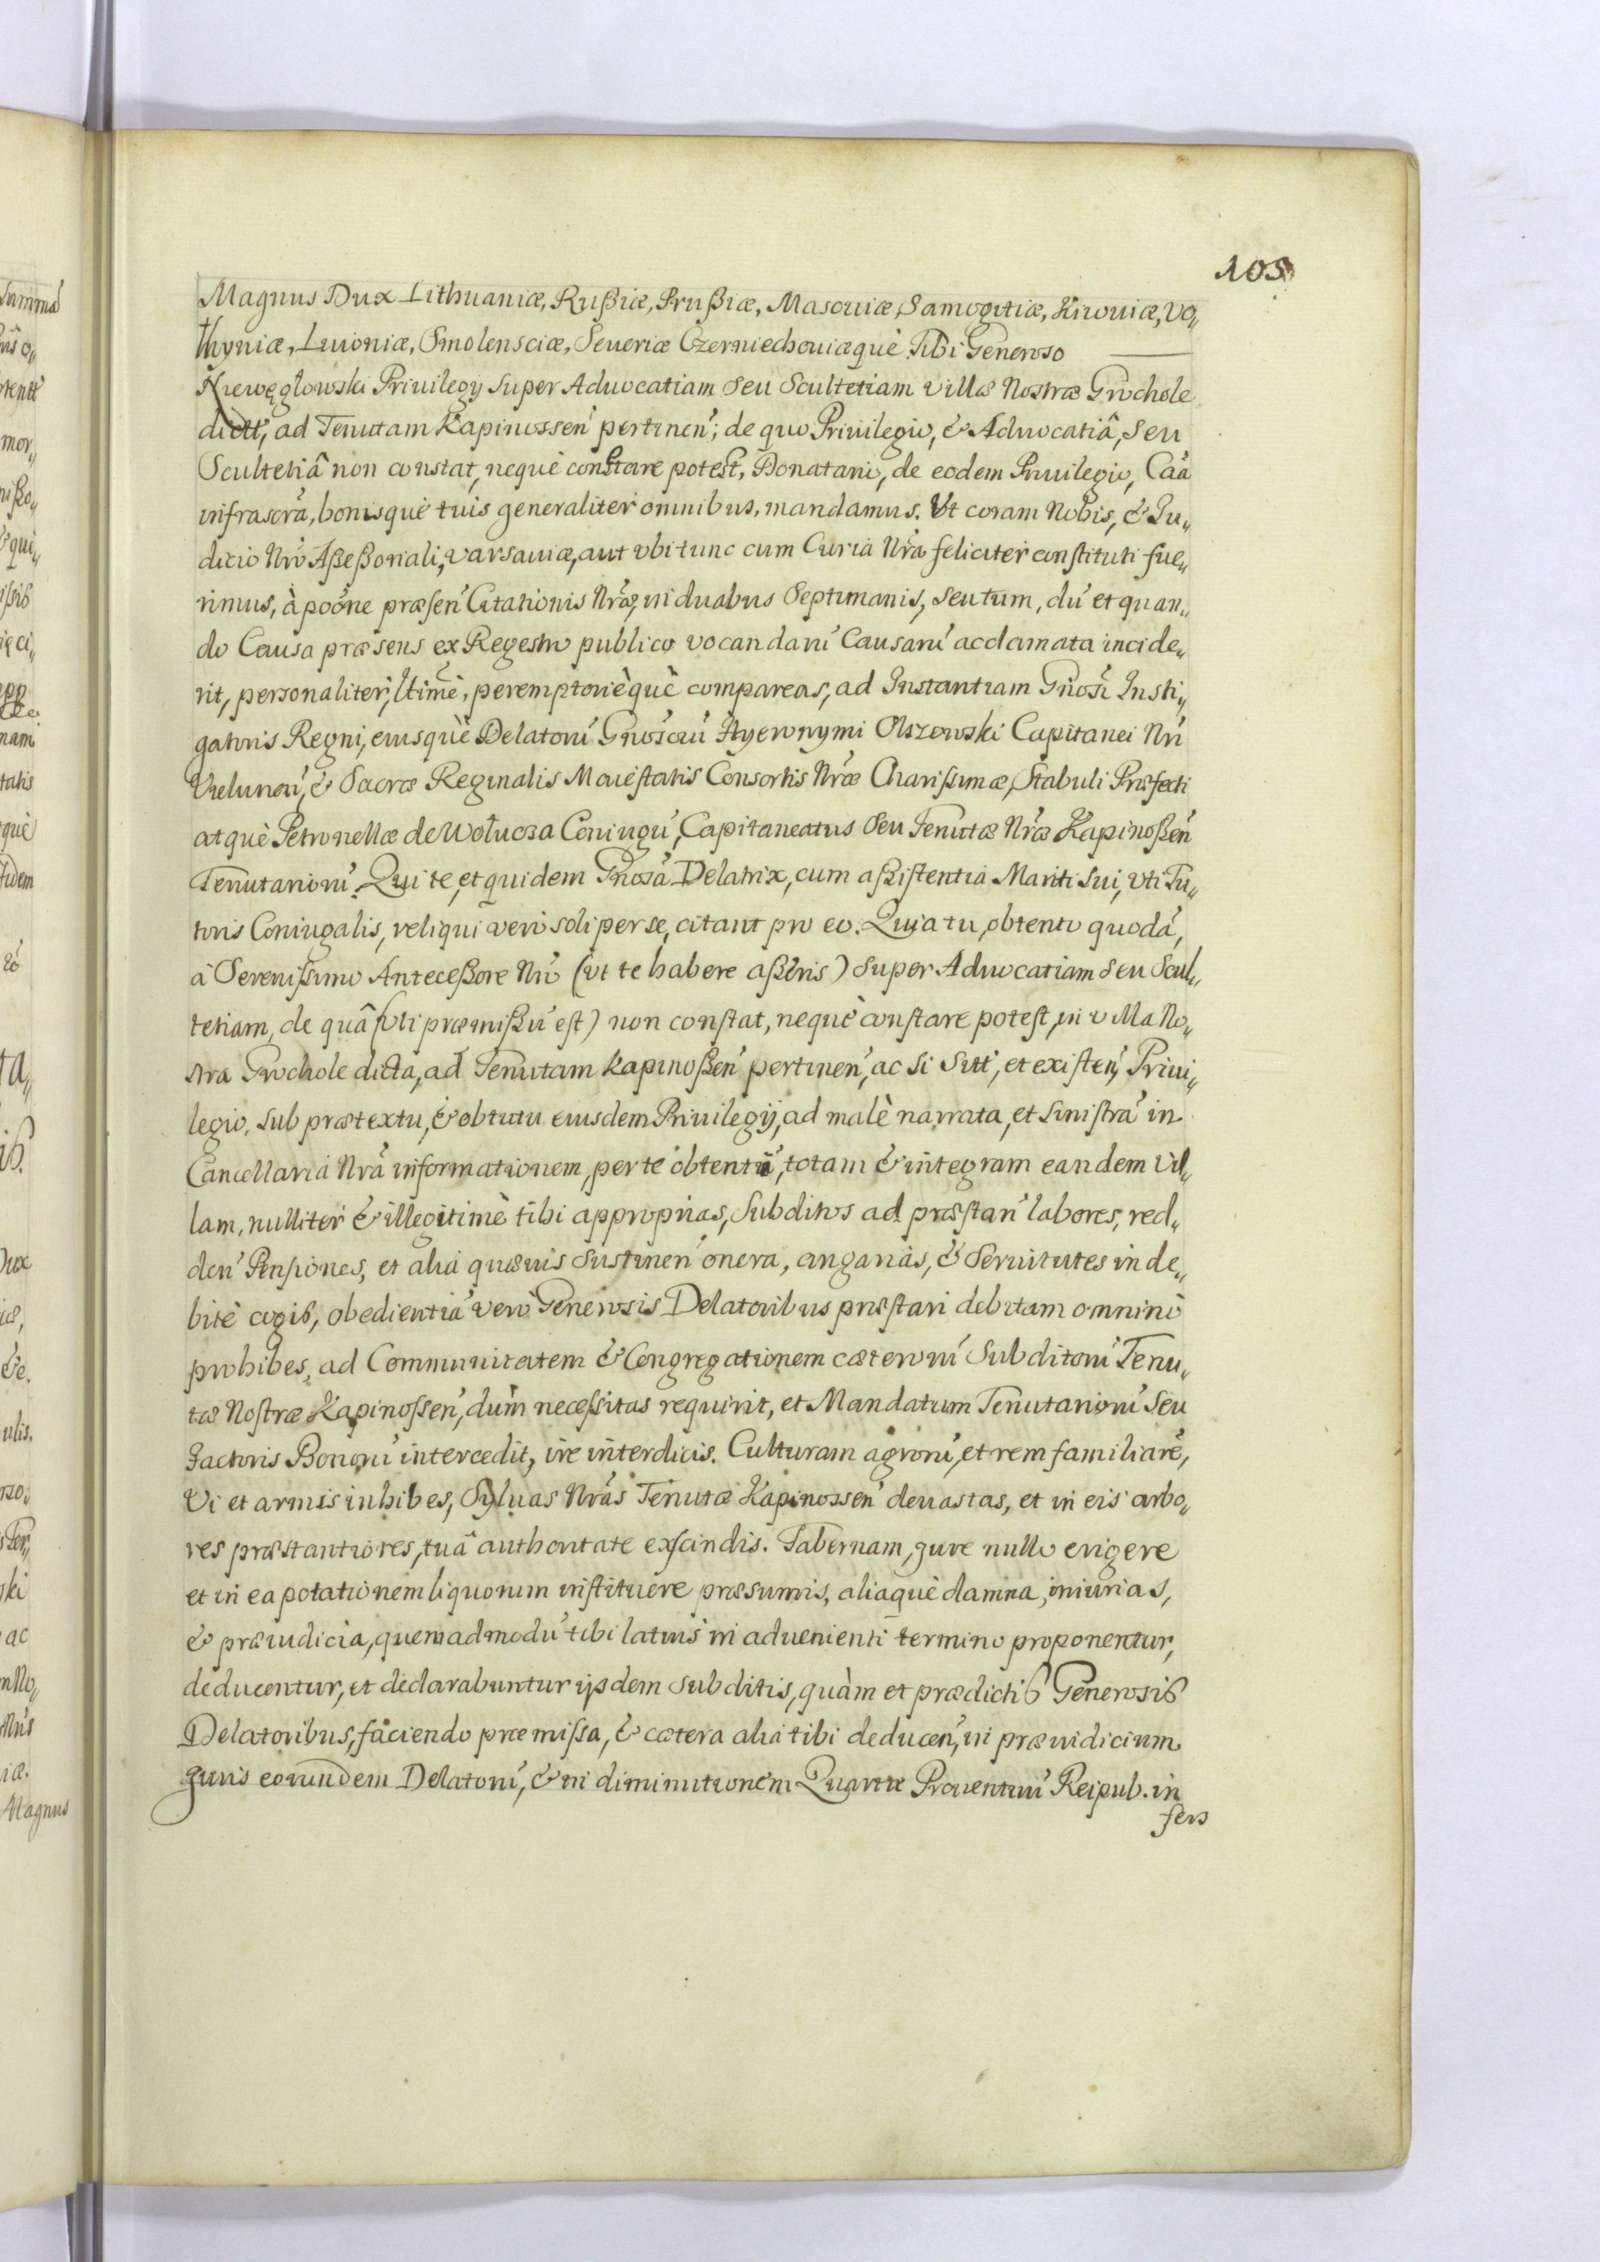 105
Magnus Dux Lithuaniæ, Rußiæ, Prußiæ, Masouiæ, Samogitiæ, Kiiouiæ, Vo„
lhyniæ, Liuoniæ, Smolensciæ, Seueriæ Czerniechouiæquè. Tibi Generoso
Niewęgłowski Priuilegij super Aduocatiam seu Scultetiam villæ Nostræ Grochole
dictæ, ad Tenutam Kapinossen̄ pertinen̄; de quo Priuilegio, & Aduocatiâ, seu
Scultetiâ non constat, nequè constare potest, Donatario, de eodem Priuilegio, Caá
infrascrá, bonisquè tuis generaliter omnibus, mandamus. Vt coram Nobis, & Ju„
dicio Nró Aßeßoriali, Varsauiæ, aut vbi tunc cum Curia Nrá feliciter constituti fue„
rimus, à poóne præsen̄ Citationis Nræ, in duabus Septimanis, seu tum, dú et quan„
do Causa præsens ex Regestro publico vocandarú Causarú acclamata incide„
rit, personaliter, ltimè, peremptorièquè compareas, ad Instantiam Gnosi Insti„
gatoris Regni, eiusquè Delatorú Gnosorú Hyeronymi Olszowski Capitanei Nri
Vielunen̄, & Sacræ Reginalis Maiestatis Consortis Nræ Charissimæ, Stabuli Præfecti
atquè Petronellæ de Wołucza Coniugú, Capitaneatus seu Tenutæ Nræ Kapinoßen̄
Tenutariorú. Qui te, et quidem Gnosa Delatrix, cum aßistentia Mariti sui, vti Tu„
toris Coniugalis, reliqui verò soli per se, citant pro eo. Quia tu, obtento quodá,
à Serenissimo Anteceßore Nró (vt te habere aßeris) super Aduocatiam seu Scul„
tetiam, de quâ (vti præmißú est) non constat, nequè constare potest, in villa No„
stra Grochole dicta, ad Tenutam Kapinoßen̄ pertinen̄, ac si sitt, et existen̄, Priui„
legio, sub prætextu, & obtutu eiusdem Priuilegij, ad malè narrata, et sinistrá in
Cancellaria Nrá informationem, per te obtenti, totam & integram eandem Vil„
lam, nulliter & illegitimè tibi approprias, Subditos ad præstan̄ labores, red„
den̄ Pensiones, et alia quæuis sustinen̄ onera, angarias, & Seruitutes inde„
bitè cogis, obedientiá verò Generosis Delatoribus præstari debitam omninò
prohibes, ad Communitatem & Congregationem cæterorú Subditorú Tenu„
tæ Nostræ Kapinossen̄, dum necessitas requirit, et Mandatum Tenutariorú seu
Factoris Bonorú intercedit, ire interdicis. Culturam agrorú, et rem familiaré,
Vi et armis inhibes, Syluas Nrás Tenutæ Kapinossen̄ deuastas, et in eis arbo„
res præstantiores, tuâ authoritate exscindis. Tabernam, jure nullo erigere
et in ea potationem liquorum instituere præsumis, aliaquè damna, iniurias,
& præiudicia, quemadmodú tibi latius in aduenienti termino proponentur,
deducentur, et declarabuntur ijsdem Subditis, quàm et prædictis Generosis
Delatoribus, faciendo præmissa, & cætera alia tibi deducen̄, in præiudicium
Juris eorundem Delatorú, & in diminutionem Quartæ Prouentuú Reipub. in
fers